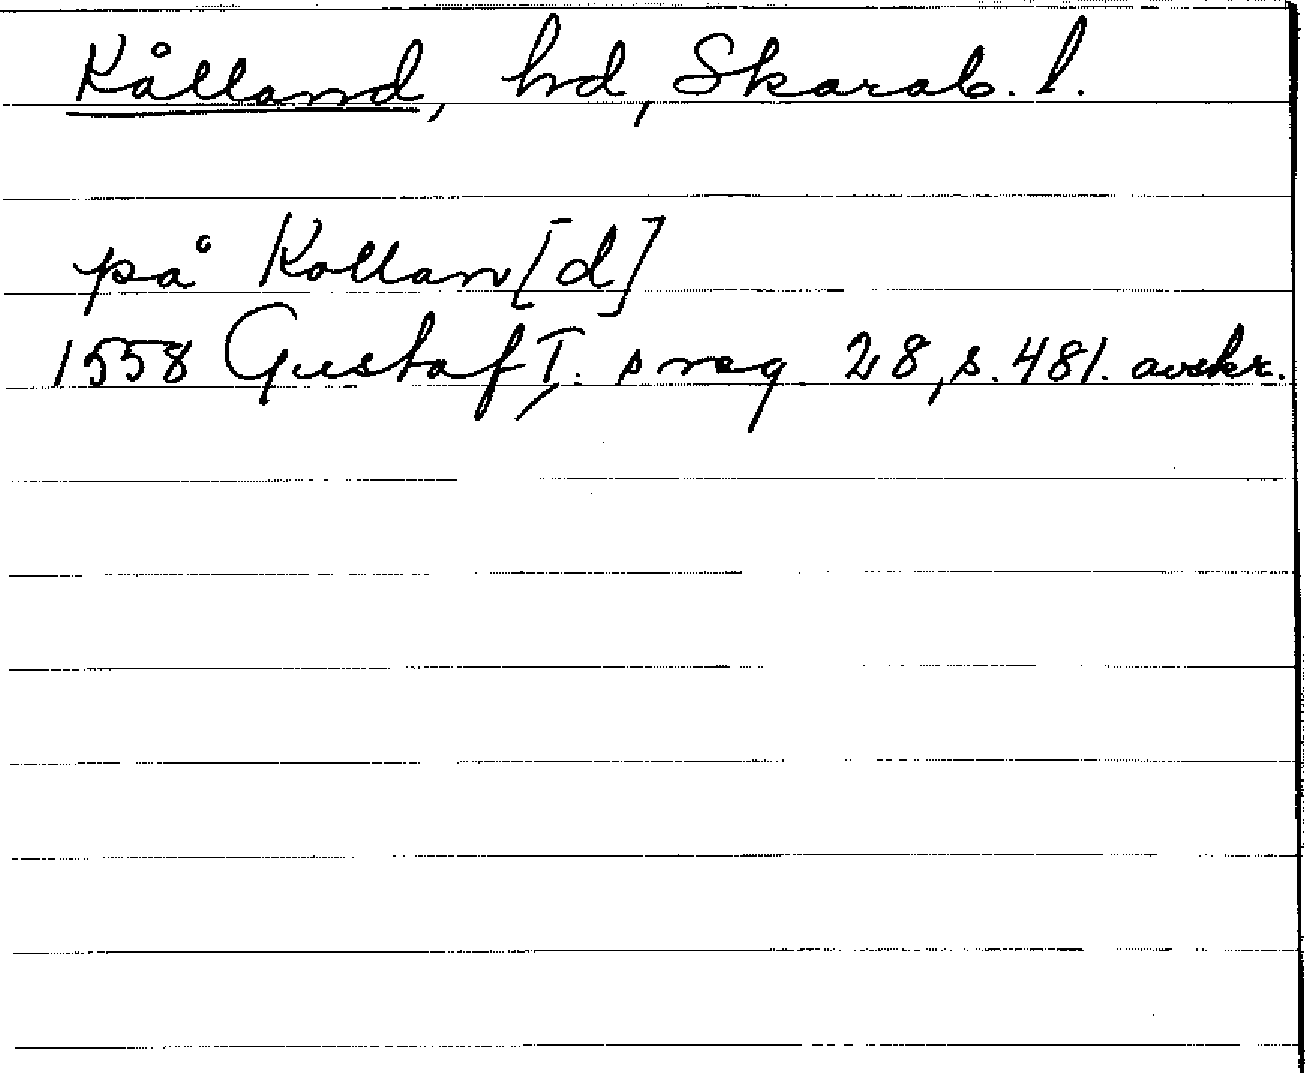 Kålland, hd, Skarab. l.
på Kollan[d]
1558 Gustaf I:s reg. 28, s. 481. avskr.